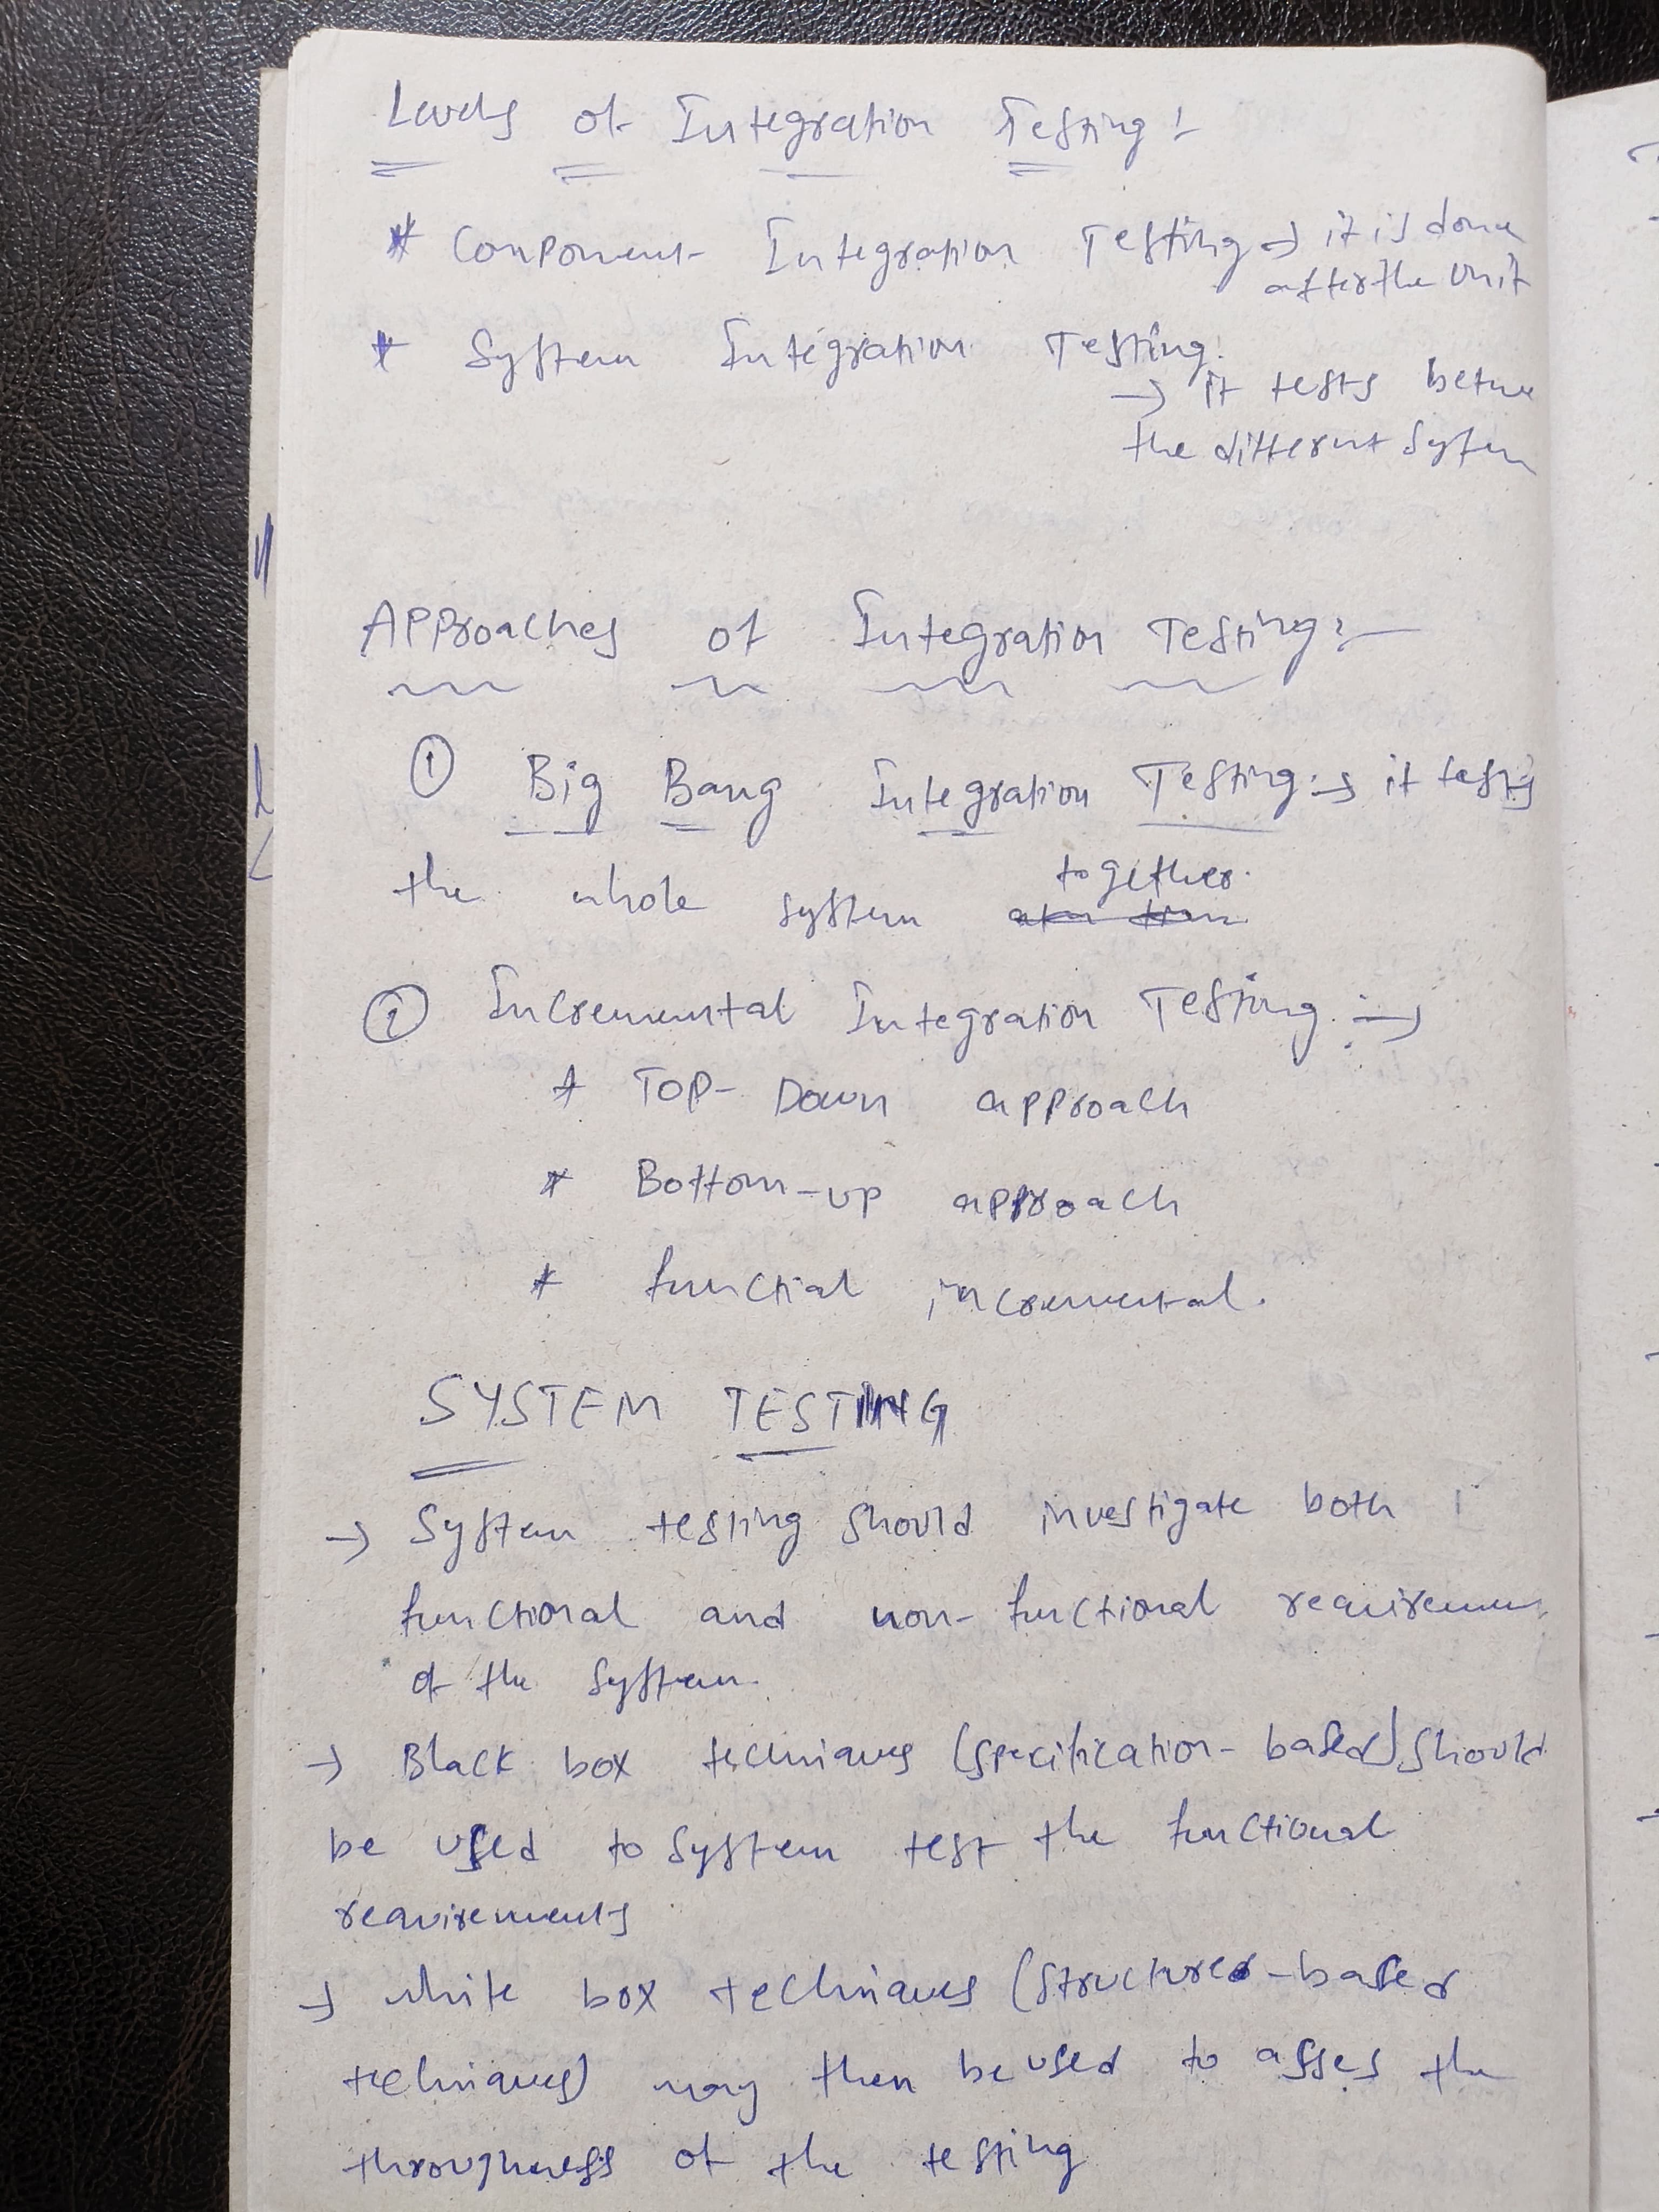 Levels of Integration Testing :-
* Component Integration Testing → it is done
after the Unit
* System Integration Testing:
→ it tests betwe
the different System
Approaches of Integration Testing :-
① Big Bang Integration Testing :→ it tests
the whole system together.
② Incremental Integration Testing :→
* Top-Down approach
* Bottom-up approach
* functial incremental.
SYSTEM TESTING
→ System testing should investigate both
functional and non-functional requiremen
of the System.
→ Black box techniques (specification-based) should
be used to system test the functional
requirements
→ white box techniques (structure-based
techniques) may then be used to asses the
throughness of the testing